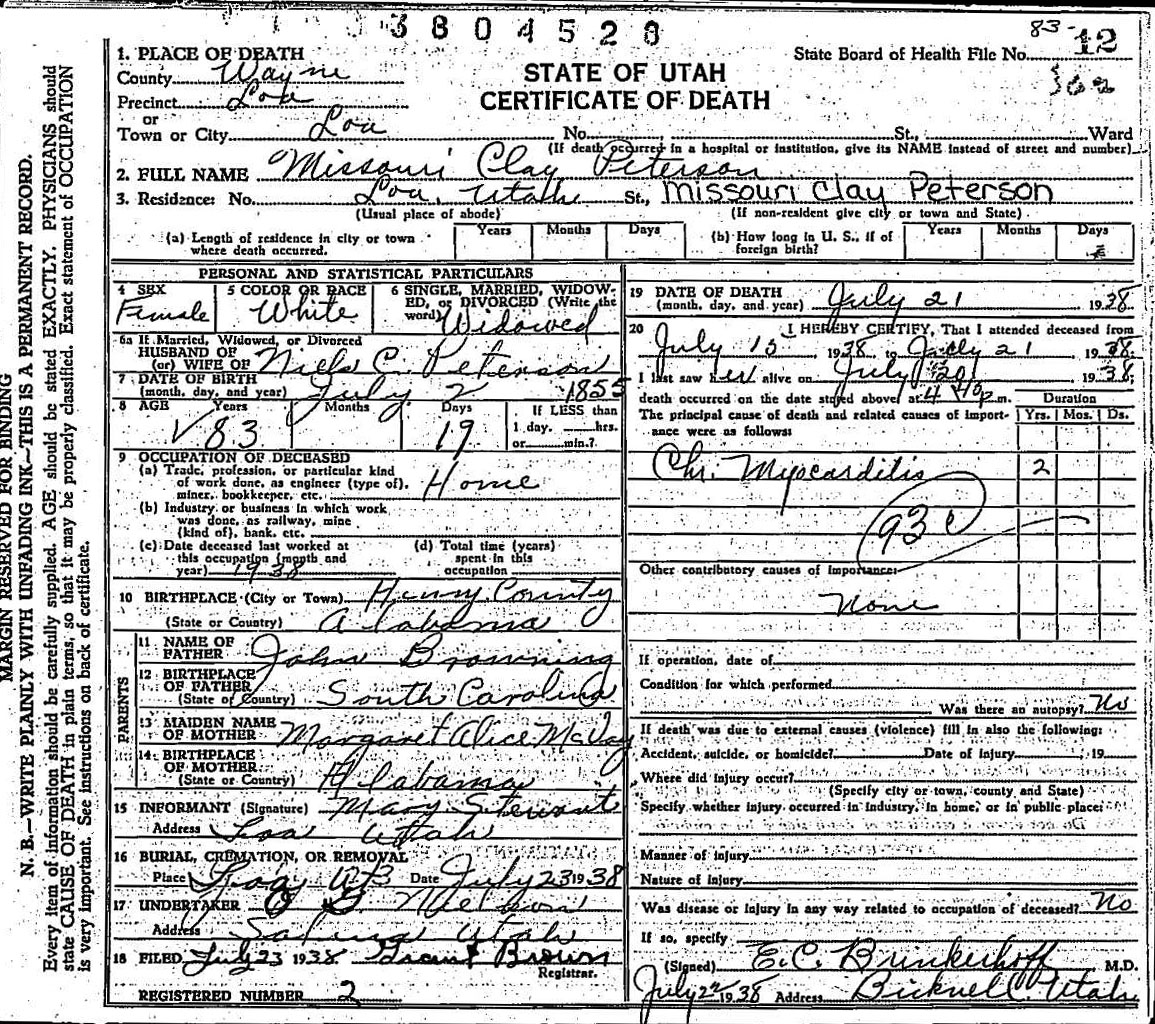 3804528
83-12
362
1. PLACE OF DEATH
State Board of Health File No.
County Wayne
STATE OF UTAH
Precinct Loa
CERTIFICATE OF DEATH
or
Town or City Loa No. St., Ward
(If death occurred in a hospital or institution, give its NAME instead of street and number)
2. FULL NAME Missouri Clay Peterson
3. Residence: No. Loa, Utah St., Missouri Clay Peterson
(Usual place of abode) (If non-resident give city or town and State)
(a) Length of residence in city or town where death occurred. Years Months Days
(b) How long in U. S., if of foreign birth? Years Months Days
PERSONAL AND STATISTICAL PARTICULARS
4 SEX Female
5 COLOR OR RACE White
6 SINGLE, MARRIED, WIDOWED, or DIVORCED (Write the word) Widowed
6a If Married, Widowed, or Divorced
HUSBAND OF
(or) WIFE OF Niels C. Peterson
7 DATE OF BIRTH
(month, day, and year) July 2 1855
8 AGE Years Months Days If LESS than
83 19 1 day, hrs.
or min.?
9 OCCUPATION OF DECEASED
(a) Trade, profession, or particular kind
of work done, as engineer (type of),
miner, bookkeeper, etc. Home
(b) Industry or business in which work
was done, as railway, mine
(kind of), bank, etc.
(c) Date deceased last worked at
this occupation (month and
year) 1938
(d) Total time (years)
spent in this
occupation
10 BIRTHPLACE (City or Town) Henry County
(State or Country) Alabama
PARENTS
11 NAME OF
FATHER John Browning
12 BIRTHPLACE
OF FATHER South Carolina
(State or Country)
13 MAIDEN NAME
OF MOTHER Margaret Alice McVay
14 BIRTHPLACE
OF MOTHER
(State or Country) Alabama
15 INFORMANT (Signature) Mary Stewart
Address Loa Utah
16 BURIAL, CREMATION, OR REMOVAL
Place Loa, Ut Date July 23 1938
17 UNDERTAKER Nielson
Address Salina Utah
18 FILED July 23 1938 Grant Brown
Registrar.
REGISTERED NUMBER 2
19 DATE OF DEATH
(month, day, and year) July 21 1938
20 I HEREBY CERTIFY, That I attended deceased from
July 15 1938 to July 21 1938
I last saw her alive on July 20 1938
death occurred on the date stated above, at 4 40 p.m. Duration
The principal cause of death and related causes of importance were as follows: Yrs. Mos. Ds.
Chr. Myocarditis 2
93c
Other contributory causes of importance:
None
If operation, date of
Condition for which performed
Was there an autopsy? No
If death was due to external causes (violence) fill in also the following:
Accident, suicide, or homicide? Date of injury 19
Where did injury occur?
(Specify city or town, county and State)
Specify whether injury occurred in industry, in home, or in public place:
Manner of injury
Nature of injury
Was disease or injury in any way related to occupation of deceased? No
If so, specify
(Signed) E.C. Brinkerhoff M.D.
July 22 1938 Address Bicknell, Utah
MARGIN RESERVED FOR BINDING
N. B.—WRITE PLAINLY WITH UNFADING INK—THIS IS A PERMANENT RECORD.
Every item of information should be carefully supplied. AGE should be stated EXACTLY. PHYSICIANS should
state CAUSE OF DEATH in plain terms, so that it may be properly classified. Exact statement of OCCUPATION
is very important. See instructions on back of certificate.